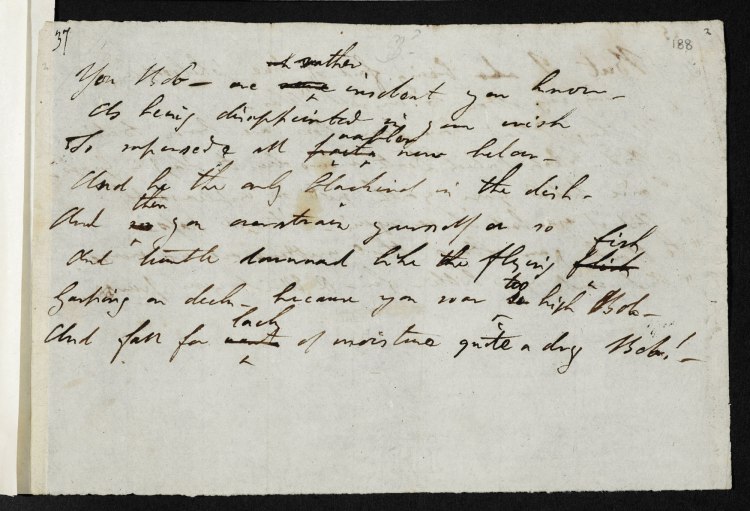 37 188
You Bob — are rather insolent you know —
At being disappointed in your wish
To supersede all warblers here below —
And be the only Blackbird in the dish —
And then you overstrain yourself or so
And tumble downward like the flying fish
Gasping on deck — because you soar too high Bob —
And fall for lack of moisture quite a dry Bob! —